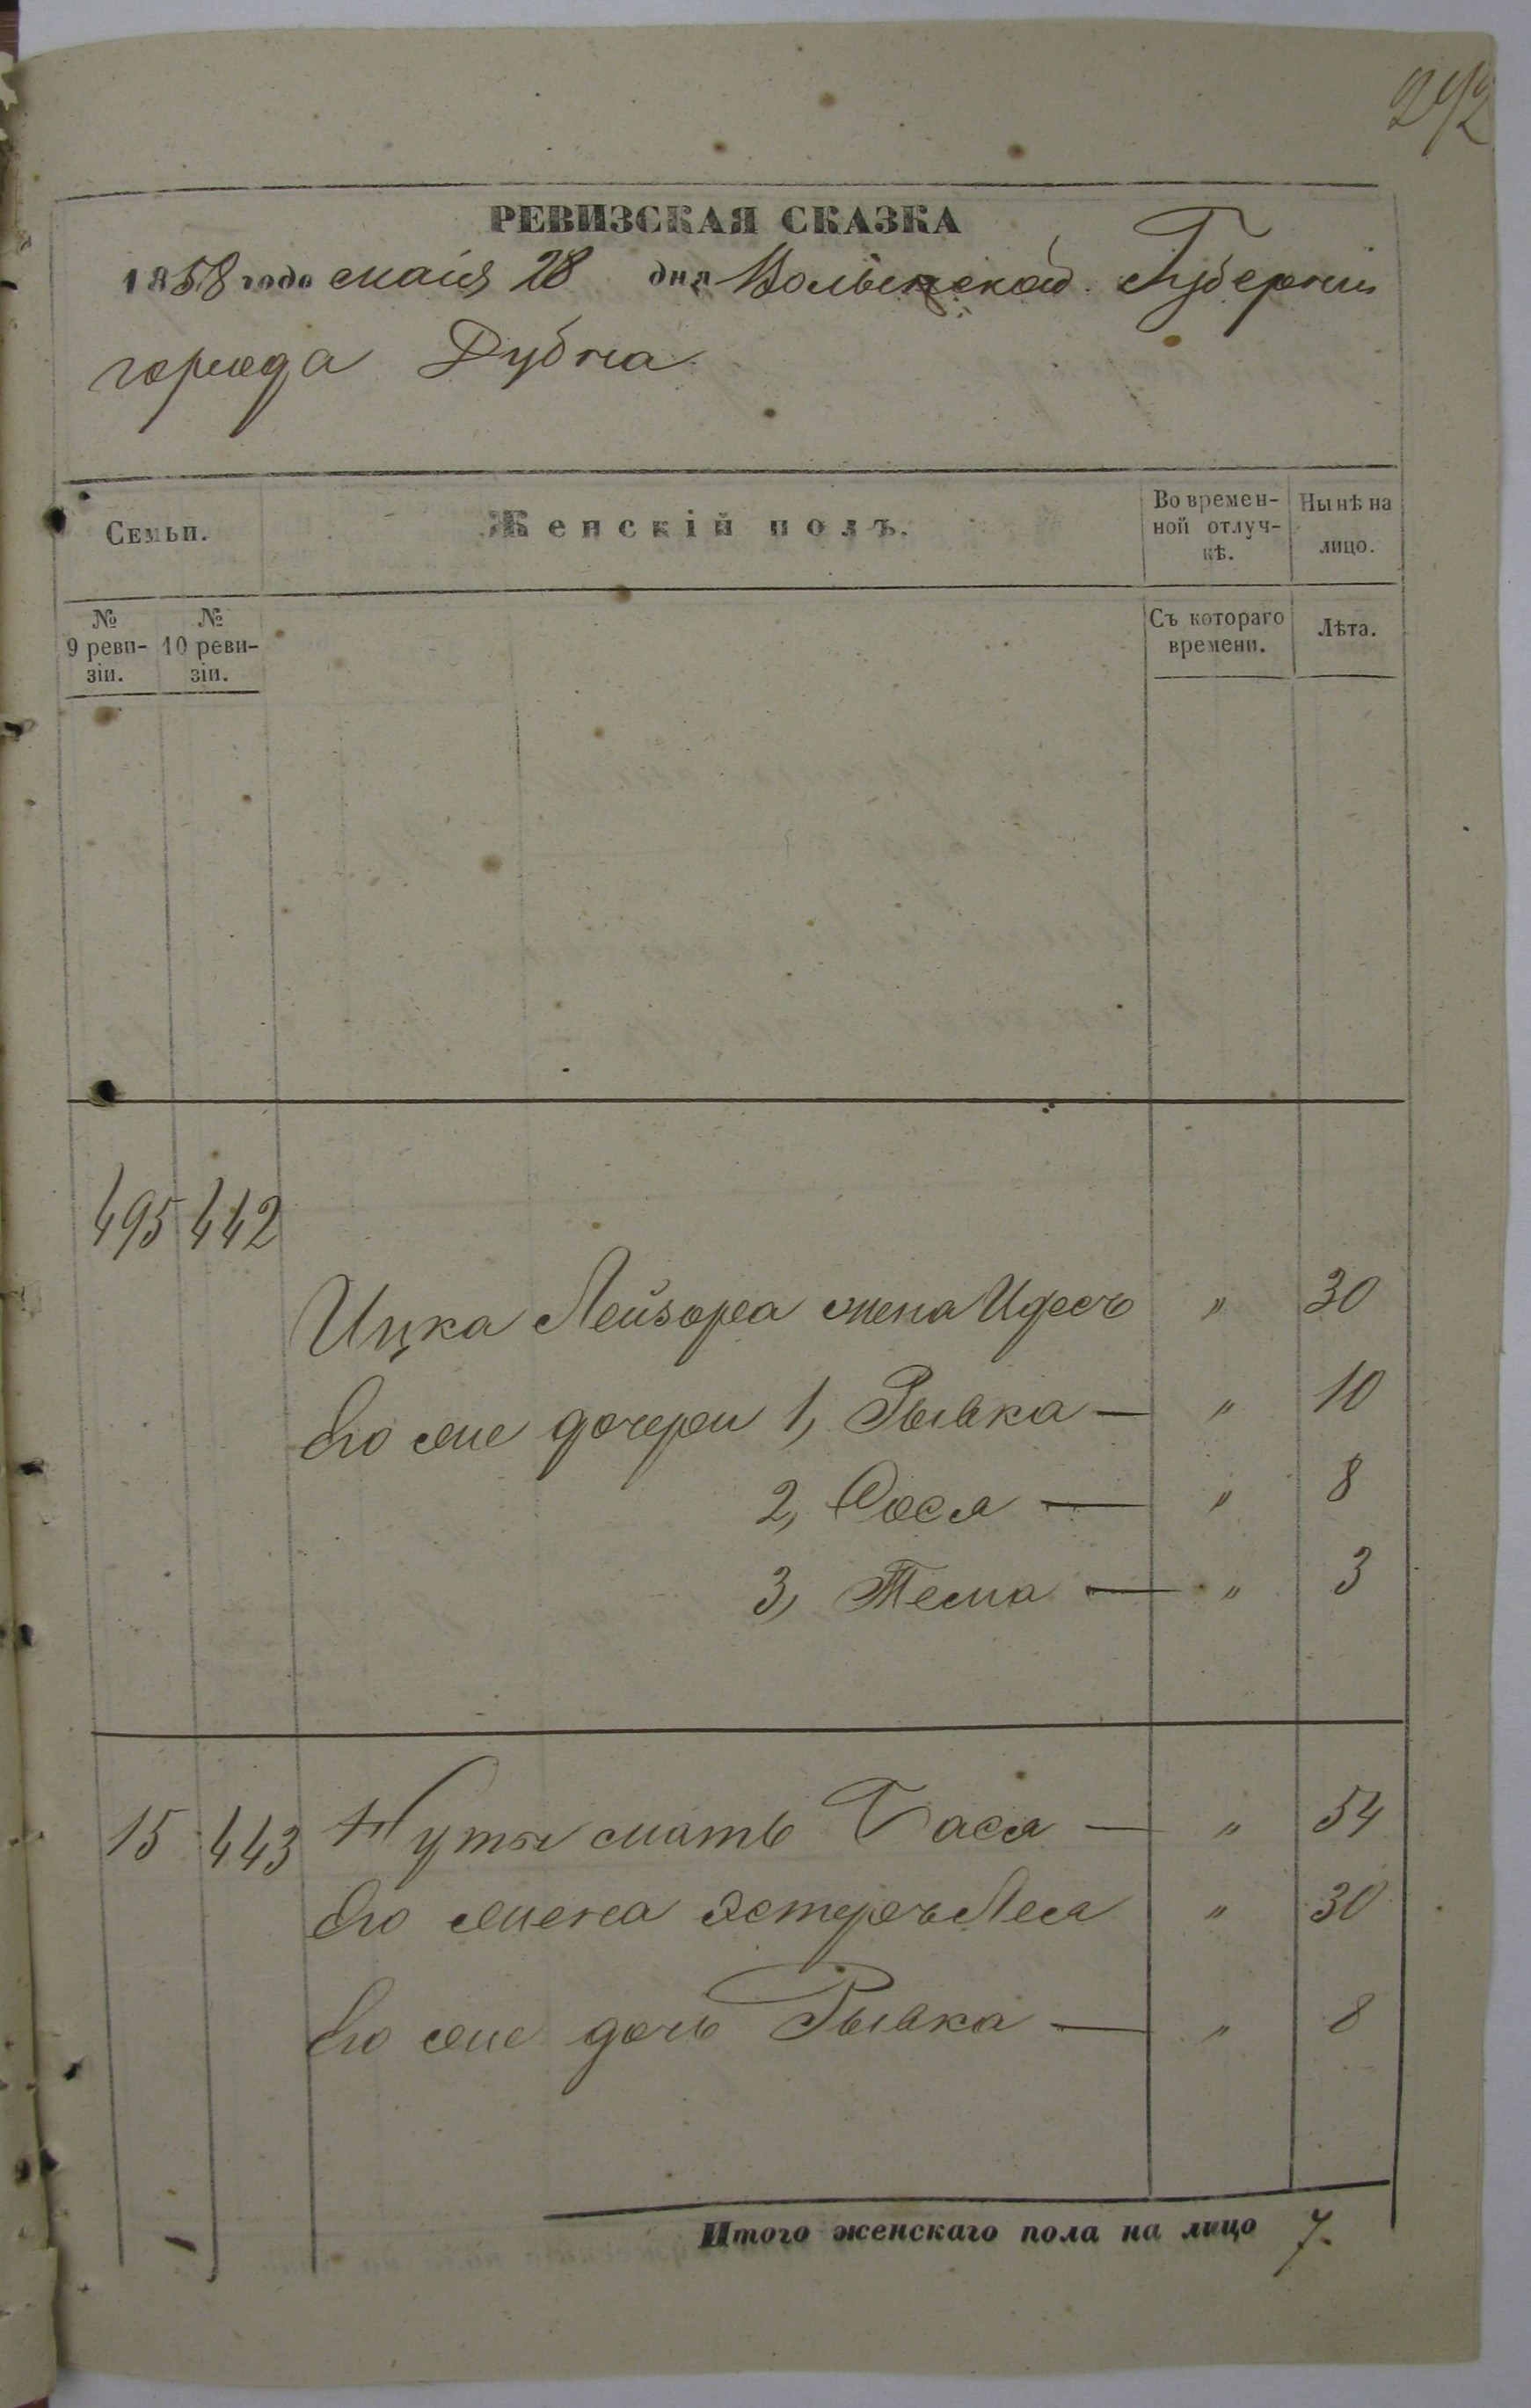 292
РЕВИЗСКАЯ СКАЗКА
1858 года маія 28 дня Волынской Губерніи
города Дубна
Семьи. Женскій полъ. Во времен- Нынѣ на
ной отлуч- лицо.
кѣ.
№ № Съ котораго Лѣта.
9 реви- 10 реви- времени.
зіи. зіи.
495 442
Ицка Лейзора жена Идесъ " 30
Его же дочери 1, Рывка — " 10
2, Сося — " 8
3, Тема — " 3
15 443 Нуты мать Бася — " 54
Его жена Эстеръ Лея " 30
Его же дочь Рывка — " 8
Итого женскаго пола на лицо 7.